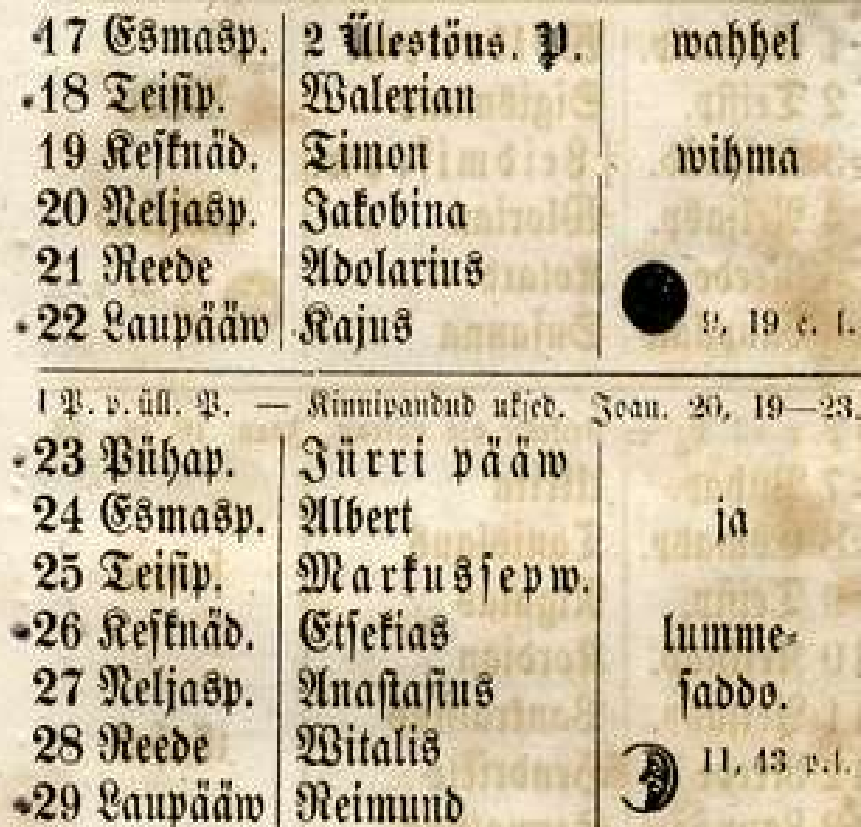 17 Esmasp. 2 Ülestöus. P. wahhel
18 Teisip. Walerian
19 Kesknäd. Timon wihma
20 Neljasp. Jakobina
21 Reede Adolarius
22 Laupääw Kajus 9, 19 e. l.
1 P. p. üll. P. — Kinnipandud uksed. Joan. 20, 19—23.
23 Pühap. Jürri pääw
24 Esmasp. Albert ja
25 Teisip. Markussepw.
26 Kesknäd. Etsekias lumme-
27 Neljasp. Anastasius saddo.
28 Reede Witalis 11, 43 p. l.
29 Laupääw Reimund